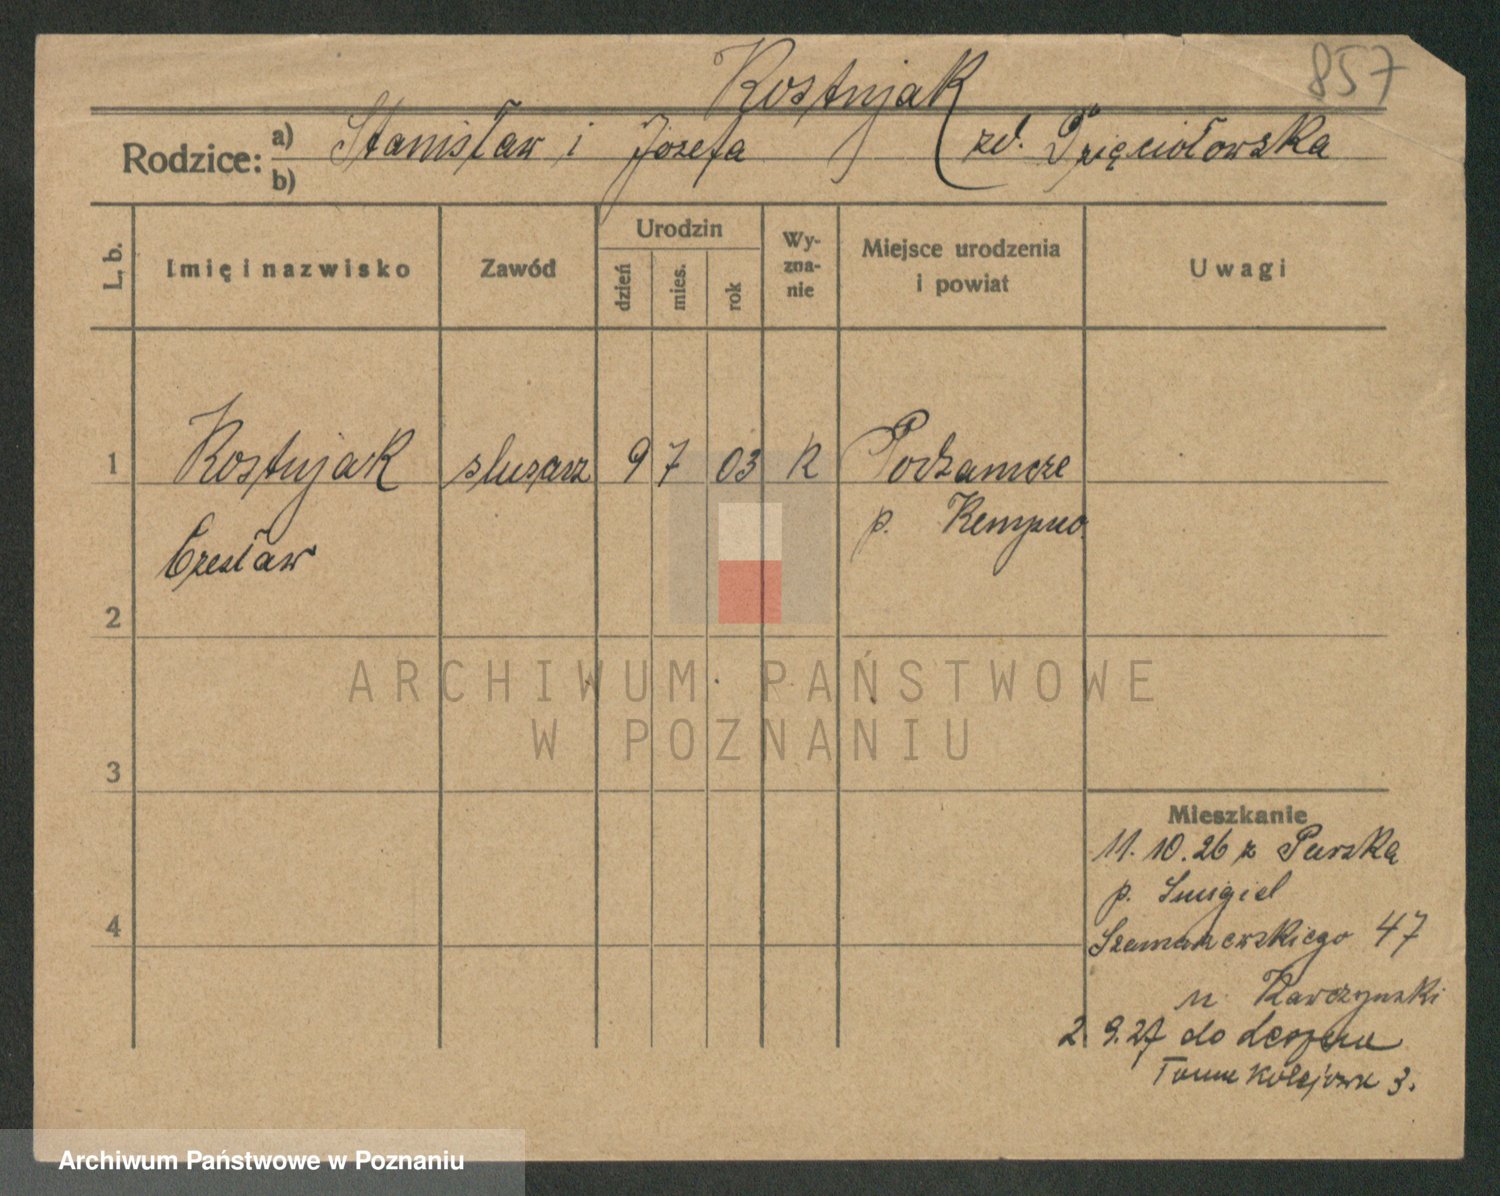 857
Rostujak
Rodzice: a) Stanisław i Józefa (zd. Dzięciołowska
b)
L. b.
Imię i nazwisko
Zawód
Urodzin
dzień
mies.
rok
Wy-
zna-
nie
Miejsce urodzenia
i powiat
Uwagi
1 Rostujak ślusarz 9 7 03 R Podzamcze
p. Kempno
Czesław
2
3
4
Mieszkanie
11.10.26 z Purska
p. Smigiel
47
u Karczynski
2.9.27 do Leszna
3.
ARCHIWUM PAŃSTWOWE
W POZNANIU
Archiwum Państwowe w Poznaniu